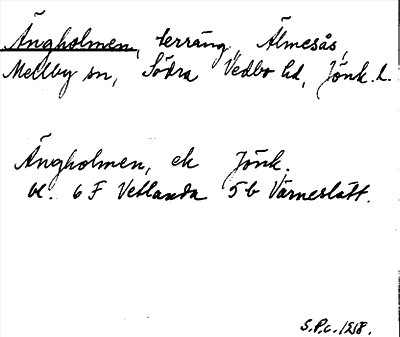 Ängholmen, terräng, Älmesås,
Mellby sn, Södra Vedbo hd, Jönk. l.
Ängholmen, ek Jönk.
bl. 6 F Vetlanda 5 b Värneslätt.
S.P.c. 1218.